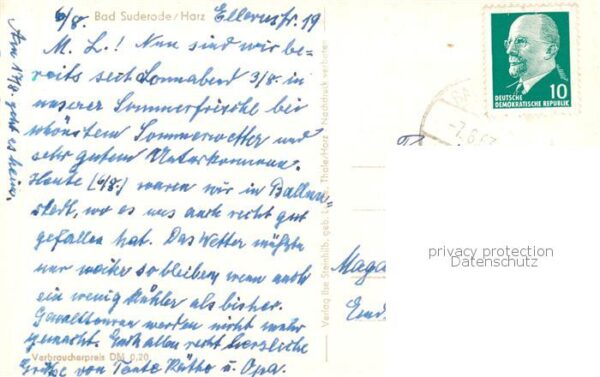 6/8. Bad Suderode/Harz Ellernstr. 19
M. L.! Nun sind wir be-
reits seit Sonnabend 3/8. in
unserer Sommerfrische bei
schönstem Sommerwetter und
sehr gutem Unterkommen.
Heute (6/8.) waren wir in Ballen-
stedt, wo es uns auch recht gut
gefallen hat. Das Wetter müßte
nur weiter so bleiben, wenn auch
ein wenig kühler als bisher.
Gewalttouren werden nicht mehr
gemacht. Euch allen recht herzliche
Grüße von Tante Käthe u. Opa.
Am 17/8. geht es heim.
Verbraucherpreis DM 0,20
Verlag Ilse Steinhilb, geb. Thale/Harz Nachdruck verboten
DEUTSCHE
DEMOKRATISCHE REPUBLIK
10
-7.8.63
Magd
privacy protection
Datenschutz